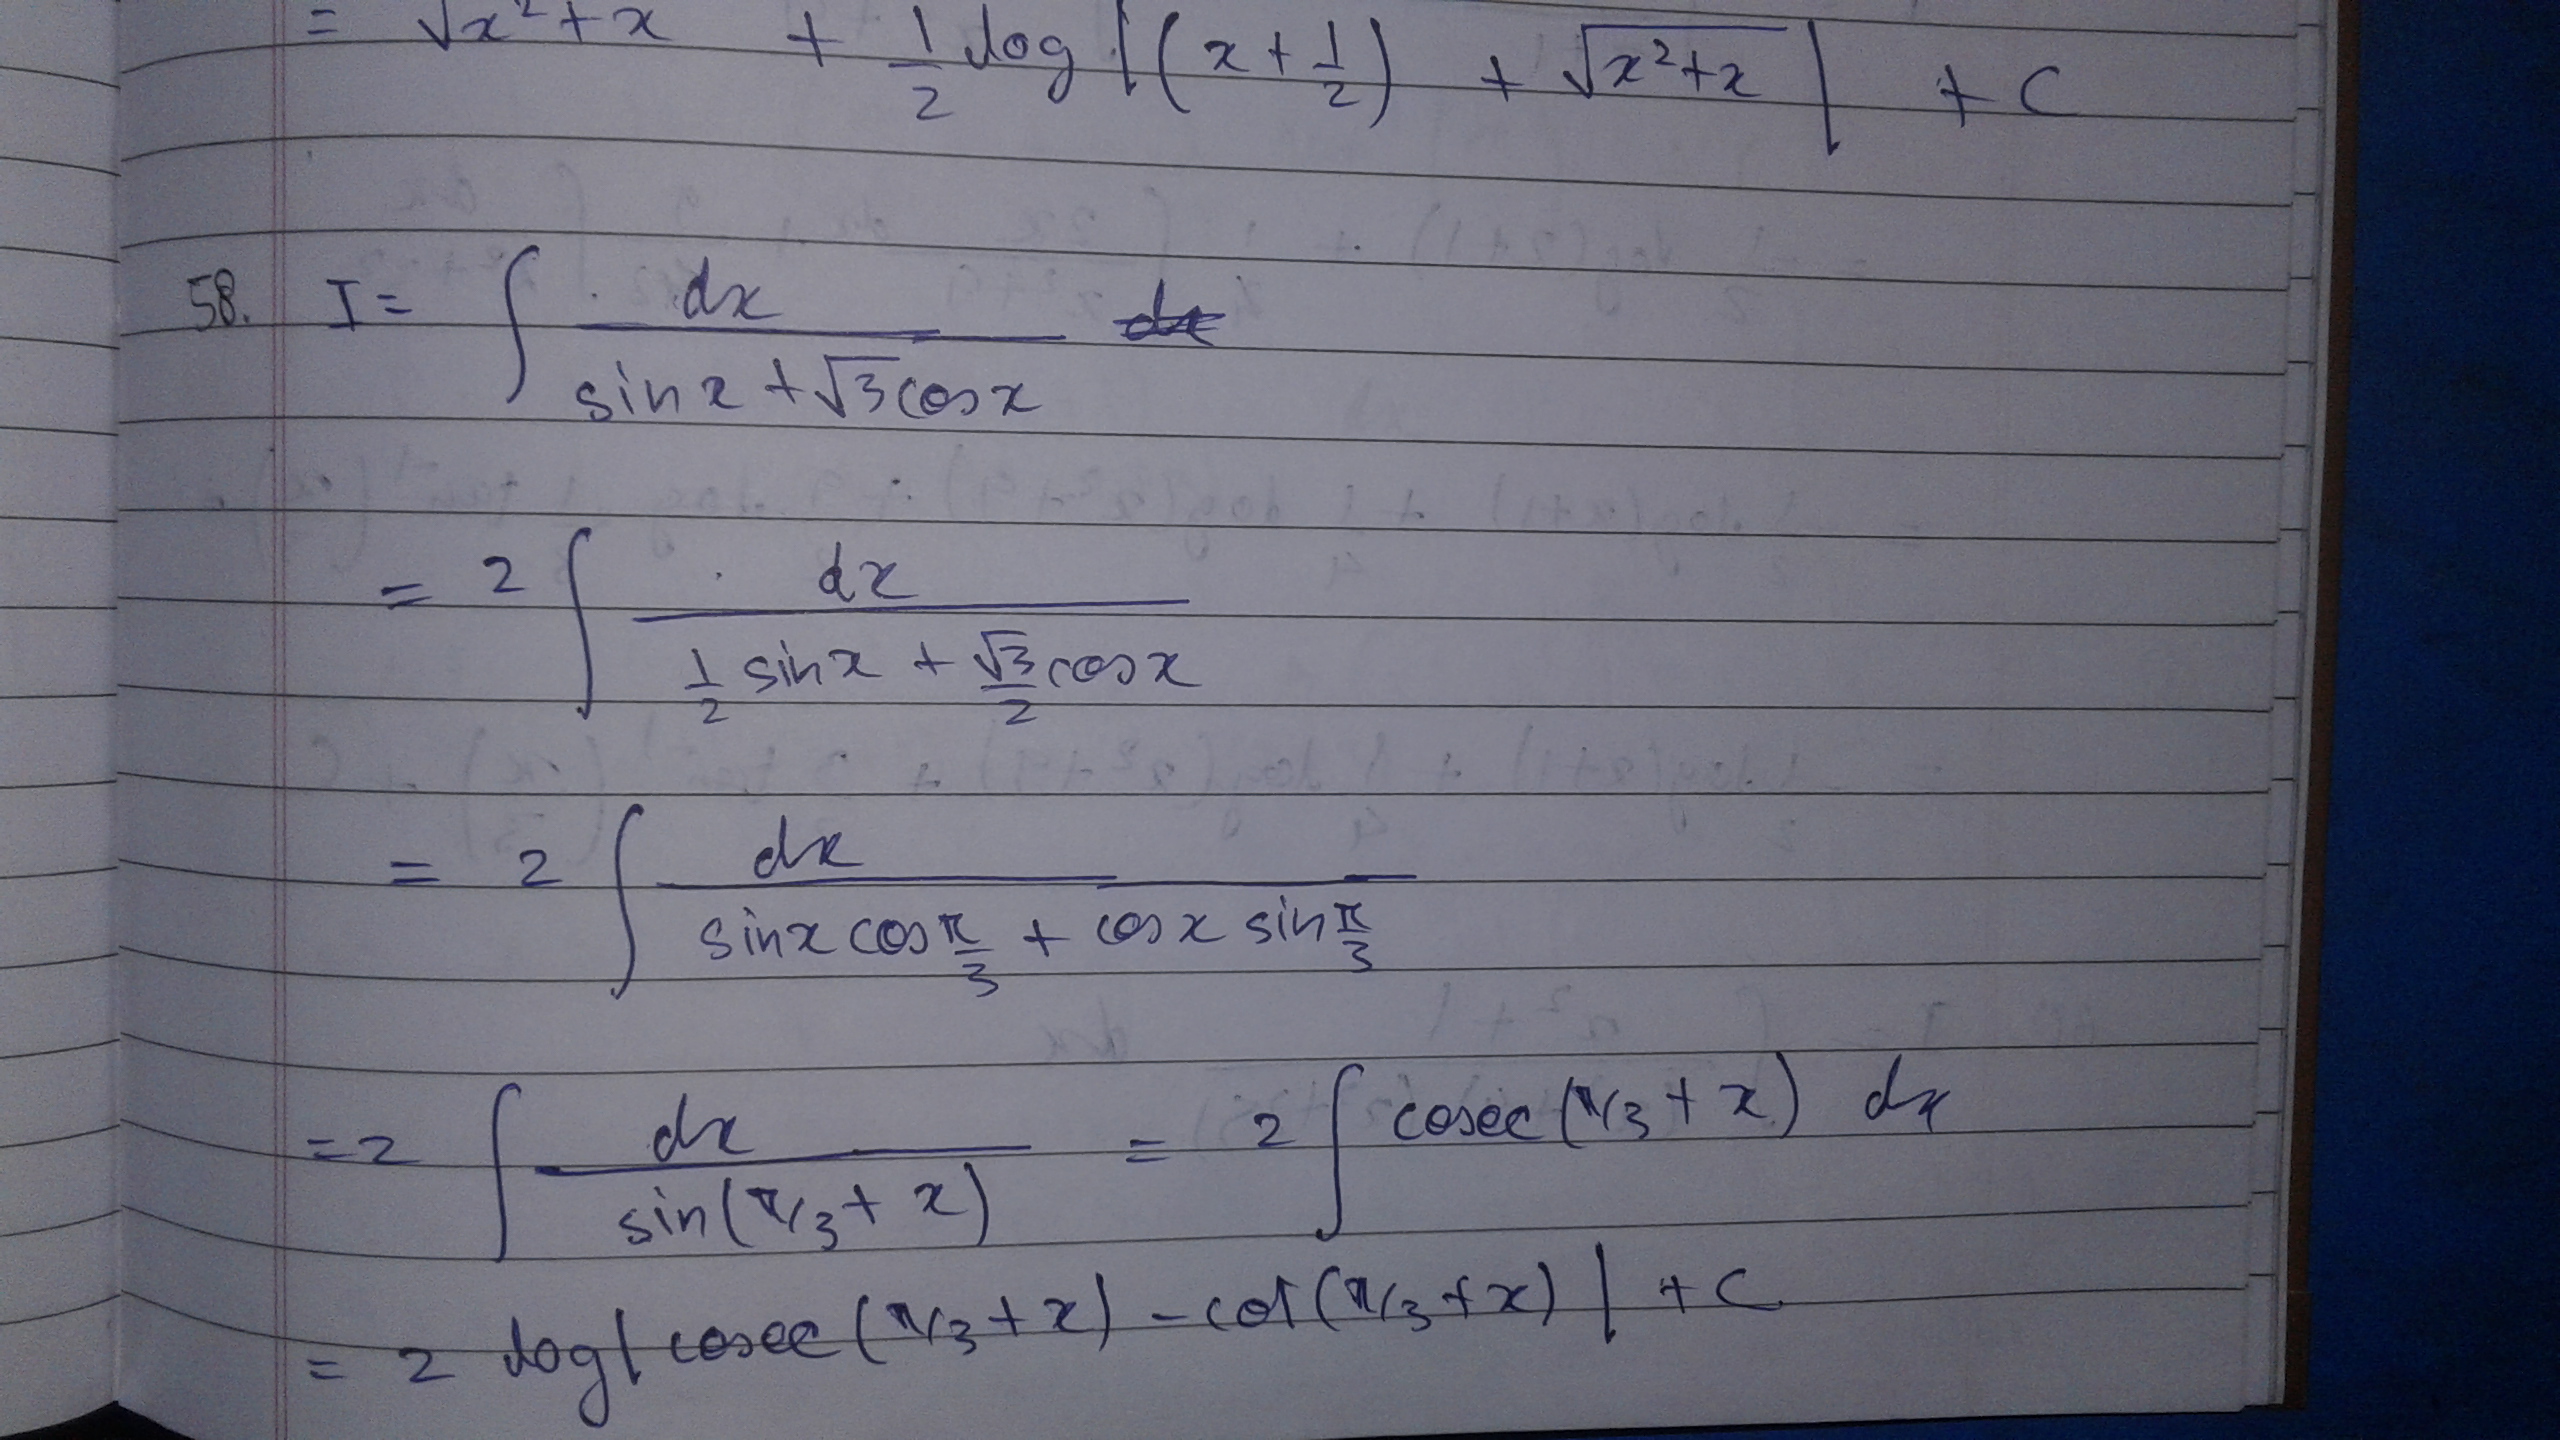 = √x²+x + 1/2 log |(x+1/2) + √x²+x| + C
58. I = ∫ dx / sinx + √3cosx
= 2 ∫ dx / 1/2 sinx + √3/2 cosx
= 2 ∫ dx / sinx cosπ/3 + cosx sinπ/3
= 2 ∫ dx / sin(π/3 + x) = 2 ∫ cosec(π/3 + x) dx
= 2 log|cosec(π/3 + x) - cot(π/3 + x)| + C